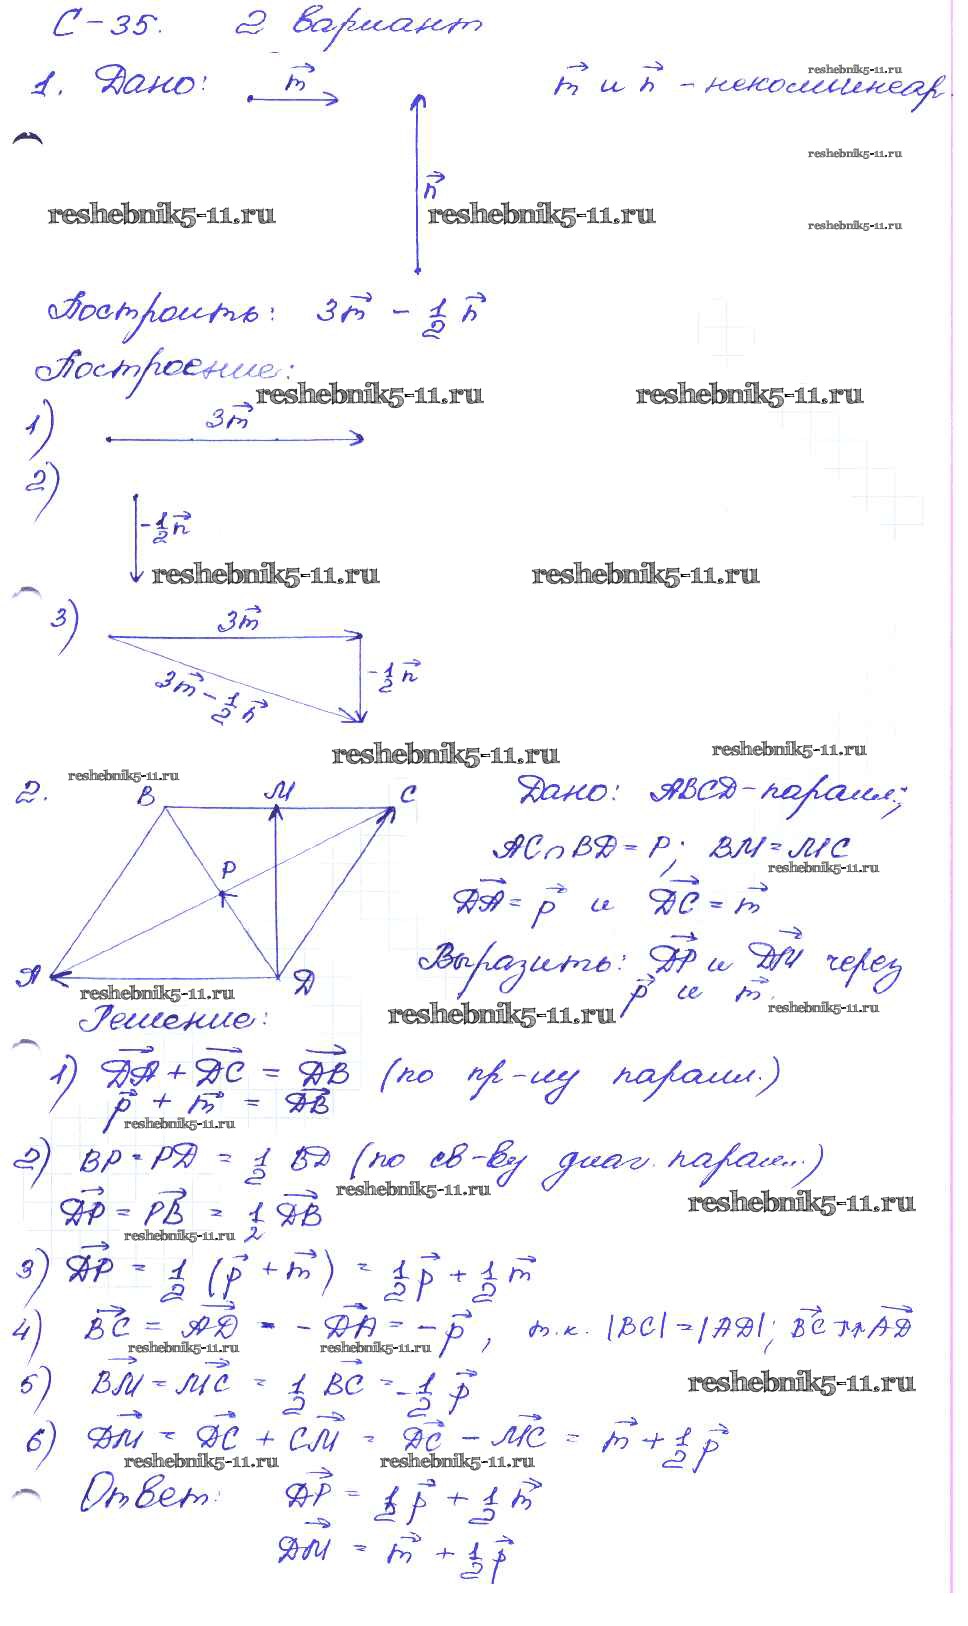 С-35. 2 вариант
1. Дано: m⃗ m⃗ и n⃗ - неколлинеар.
reshebnik5-11.ru
reshebnik5-11.ru
n⃗
reshebnik5-11.ru reshebnik5-11.ru
reshebnik5-11.ru
Построить: 3m⃗ - 1/2 n⃗
Построение:
reshebnik5-11.ru reshebnik5-11.ru
1) 3m⃗
2)
-1/2 n⃗
reshebnik5-11.ru reshebnik5-11.ru
3) 3m⃗
-1/2 n⃗
3m⃗ - 1/2 n⃗
reshebnik5-11.ru reshebnik5-11.ru
reshebnik5-11.ru
2. B M C
P
A D
Дано: ABCD-паралл.;
AC∩BD = P; BM = MC
reshebnik5-11.ru
DA⃗ = p⃗ и DC⃗ = m⃗
Выразить: DP⃗ и DM⃗ через
p⃗ и m⃗.
reshebnik5-11.ru reshebnik5-11.ru reshebnik5-11.ru
Решение:
1) DA⃗ + DC⃗ = DB⃗ (по пр-лу паралл.)
p⃗ + m⃗ = DB⃗
reshebnik5-11.ru
2) BP = PD = 1/2 BD (по св-ву диаг. паралл.)
reshebnik5-11.ru reshebnik5-11.ru
DP⃗ = PB⃗ = 1/2 DB⃗
reshebnik5-11.ru
3) DP⃗ = 1/2 (p⃗ + m⃗) = 1/2 p⃗ + 1/2 m⃗
4) BC⃗ = AD⃗ = - DA⃗ = - p⃗, т.к. |BC| = |AD|; BC⃗ ↑↑ AD⃗
reshebnik5-11.ru reshebnik5-11.ru
5) BM⃗ = MC⃗ = 1/2 BC⃗ = - 1/2 p⃗
reshebnik5-11.ru
6) DM⃗ = DC⃗ + CM⃗ = DC⃗ - MC⃗ = m⃗ + 1/2 p⃗
reshebnik5-11.ru reshebnik5-11.ru
Ответ: DP⃗ = 1/2 p⃗ + 1/2 m⃗
DM⃗ = m⃗ + 1/2 p⃗